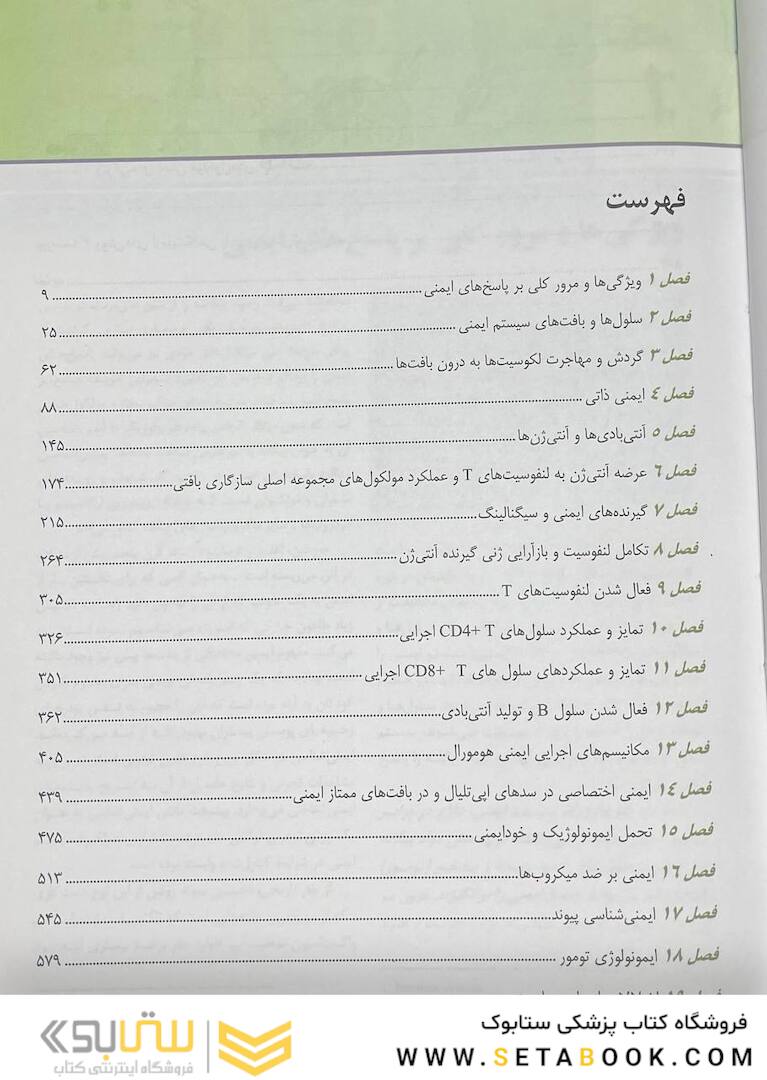 فهرست
فصل ۱ ویژگی‌ها و مرور کلی بر پاسخ‌های ایمنی ... ۹
فصل ۲ سلول‌ها و بافت‌های سیستم ایمنی ... ۲۵
فصل ۳ گردش و مهاجرت لکوسیت‌ها به درون بافت‌ها ... ۶۲
فصل ٤ ایمنی ذاتی ... ۸۸
فصل ٥ آنتی‌بادی‌ها و آنتی‌ژن‌ها ... ۱۴۵
فصل ٦ عرضه آنتی‌ژن به لنفوسیت‌های T و عملکرد مولکول‌های مجموعه اصلی سازگاری بافتی ... ۱۷۴
فصل ۷ گیرنده‌های ایمنی و سیگنالینگ ... ۲۱۵
فصل ۸ تکامل لنفوسیت و بازآرایی ژنی گیرنده آنتی‌ژن ... ۲۶۴
فصل ۹ فعال شدن لنفوسیت‌های T ... ۳۰۵
فصل ۱۰ تمایز و عملکرد سلول‌های CD4+ T اجرایی ... ۳۲۶
فصل ۱۱ تمایز و عملکردهای سلول های CD8+ T اجرایی ... ۳۵۱
فصل ۱۲ فعال شدن سلول B و تولید آنتی‌بادی ... ۳۶۲
فصل ۱۳ مکانیسم‌های اجرایی ایمنی هومورال ... ۴۰۵
فصل ۱٤ ایمنی اختصاصی در سدهای اپی‌تلیال و در بافت‌های ممتاز ایمنی ... ۴۳۹
فصل ۱٥ تحمل ایمونولوژیک و خودایمنی ... ۴۷۵
فصل ۱٦ ایمنی بر ضد میکروب‌ها ... ۵۱۳
فصل ۱۷ ایمنی‌شناسی پیوند ... ۵۴۵
فصل ۱۸ ایمونولوژی تومور ... ۵۷۹
فروشگاه کتاب پزشکی ستابوک
WWW.SETABOOK.COM
ستابوک
فروشگاه اینترنتی کتاب